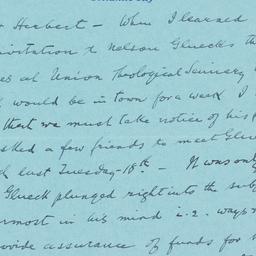 Herbert - When I learned
invitation to Nelson Glueck's
es at Union Theological Seminary
would be in town for a week I
that we must take notice of his
asked a few friends to meet Glueck
last Tuesday - 18th - It was only
Glueck plunged right into the sub
ermost in his mind i.e. ways
ovide assurance of funds for